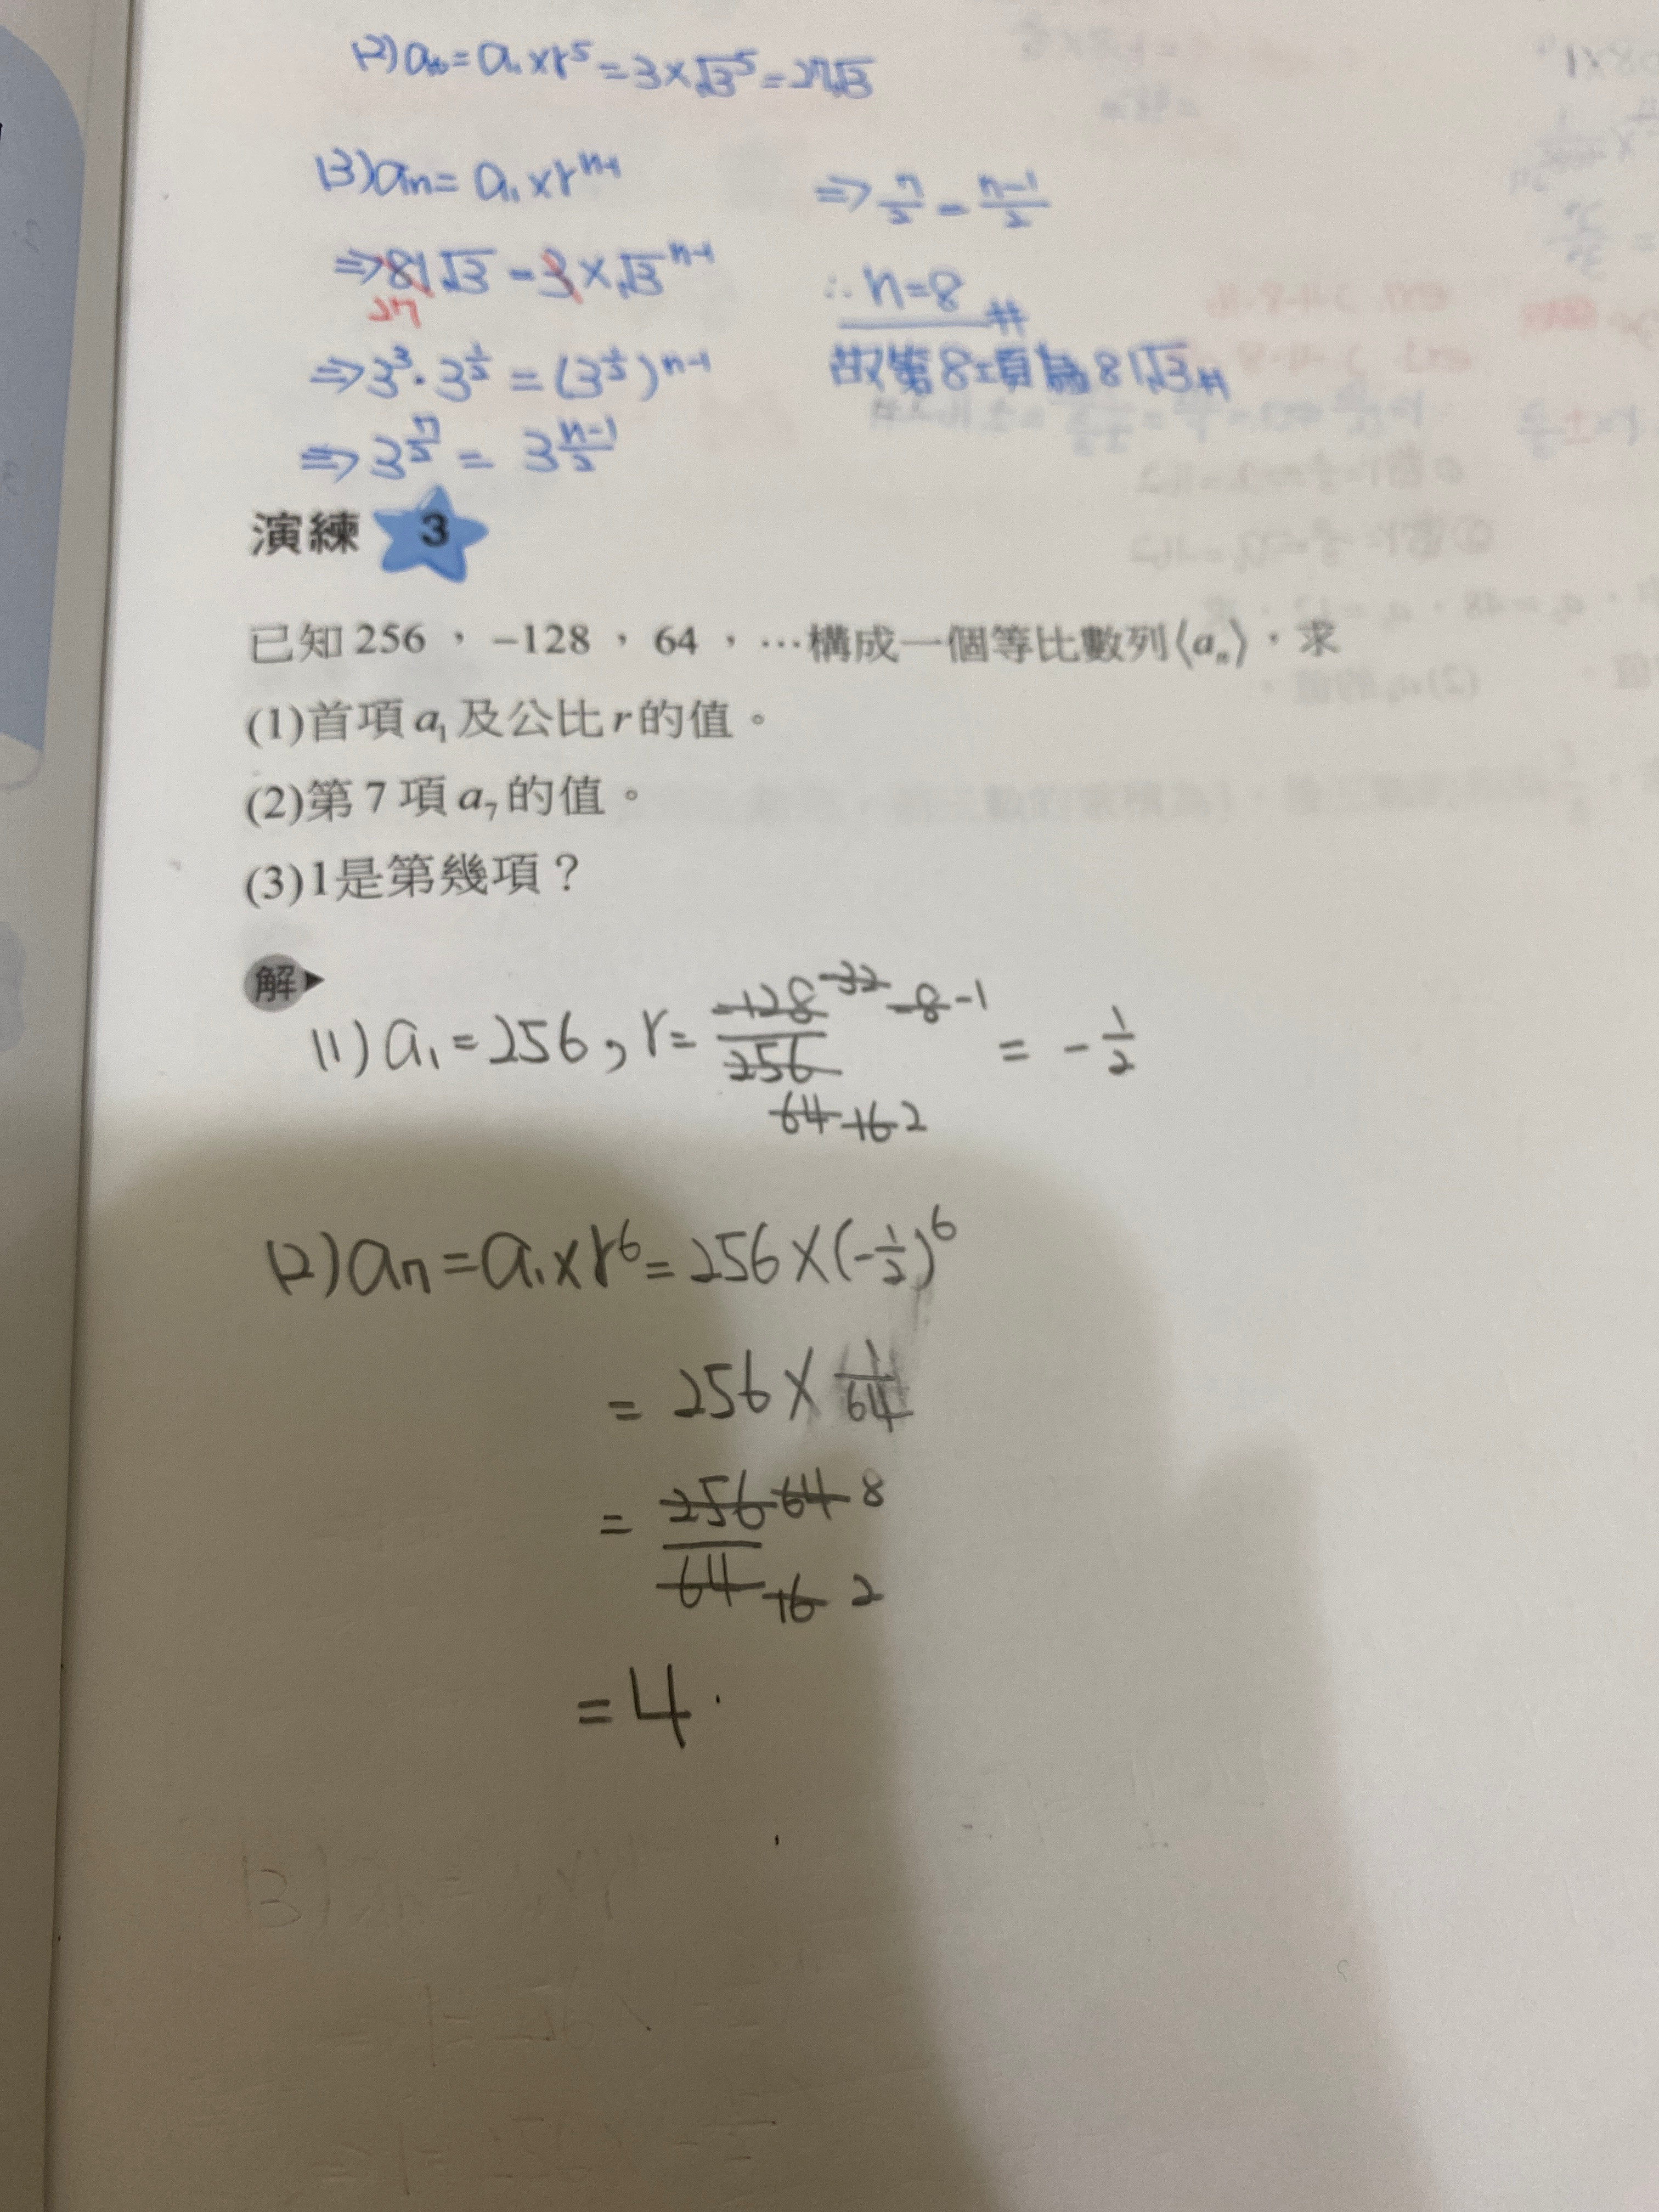 (2)a₆=a₁×r⁵=3×√3⁵=27√3
(3)aₙ=a₁×rⁿ⁻¹
⇒81√3=3×√3ⁿ⁻¹
27
⇒3³·3^(1/2)=(3^(1/2))ⁿ⁻¹
⇒3^(7/2)=3^((n-1)/2)
⇒7/2=(n-1)/2
∴n=8 #
故第8項為81√3 #
演練 3
已知256，-128，64，…構成一個等比數列⟨aₙ⟩，求
(1)首項a₁及公比r的值。
(2)第7項a₇的值。
(3)1是第幾項？
解
(1)a₁=256，r=-128/256 -32 -8 -1 64 16 2 =-1/2
(2)a₇=a₁×r⁶=256×(-1/2)⁶
=256×1/64
=256/64 64 8 16 2
=4.